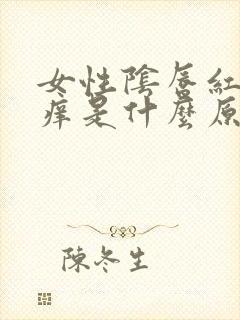 女性陰唇紅
痒是什麼原
陳冬生